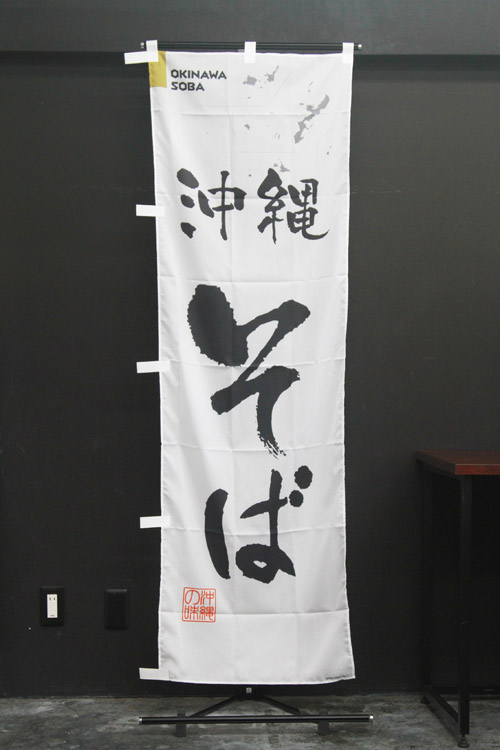 OKINAWA
SOBA
沖縄
そば
沖縄
の味